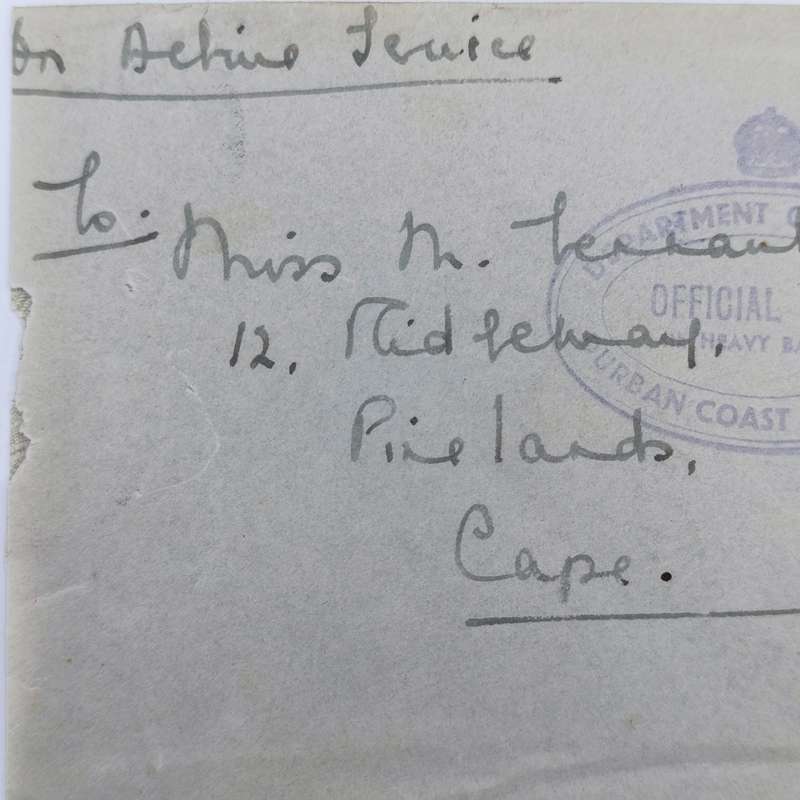 On Active Service
To. Miss M. Tennant
12, Ridgeway,
Pinelands,
Cape.
DEPARTMENT O
OFFICIAL
HEAVY BA
URBAN COAST